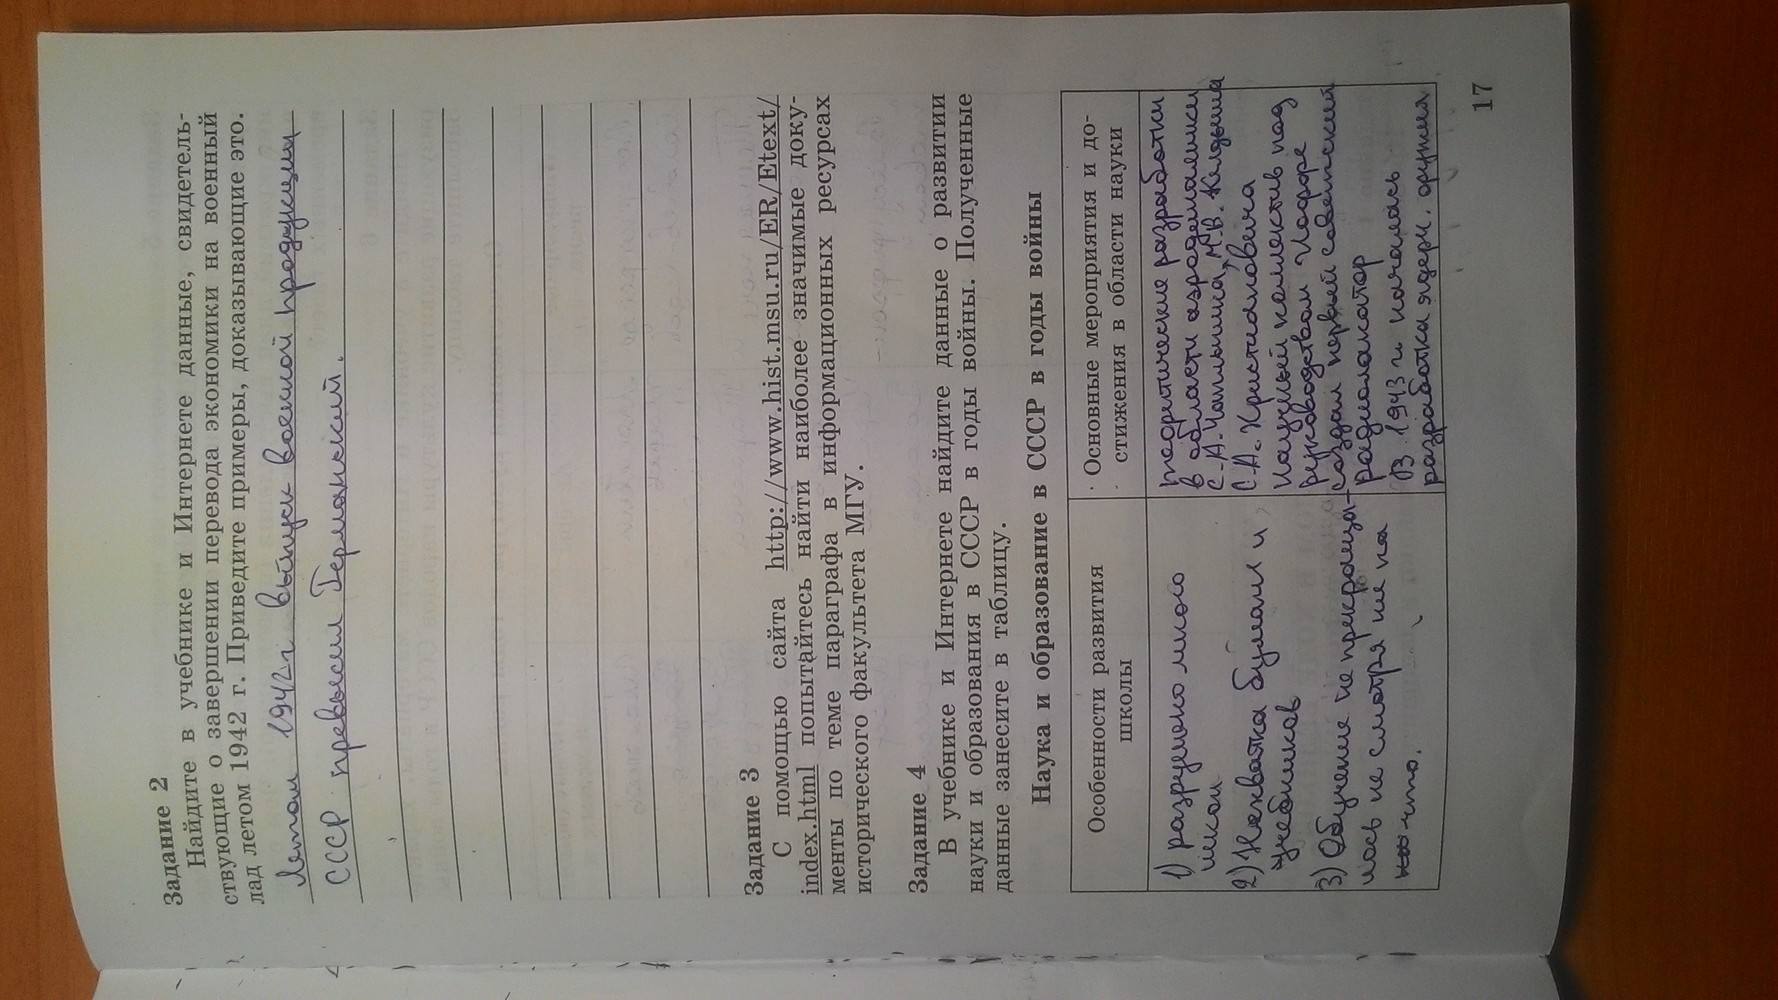 Задание 2
Найдите в учебнике и Интернете данные, свидетель-
ствующие о завершении перевода экономики на военный
лад летом 1942 г. Приведите примеры, доказывающие это.
Летом 1942г. выпуск военной продукции
СССР превысил Германский.
Задание 3
С помощью сайта http://www.hist.msu.ru/ER/Etext/
index.html попытайтесь найти наиболее значимые доку-
менты по теме параграфа в информационных ресурсах
исторического факультета МГУ.
Задание 4
В учебнике и Интернете найдите данные о развитии
науки и образования в СССР в годы войны. Полученные
данные занесите в таблицу.
Наука и образование в СССР в годы войны
Особенности развития
школы
Основные мероприятия и до-
стижения в области науки
1) разрушено много
школ
2) Нехватка бумаги и
учебников
3) Обучение не прекраща-
лось не смотря ни на
что.
теоритические разработки
в области аэродинамики
С.А. Чаплыгина, М.В. Келдыша
С.А. Христиановича
Научный коллектив под
руководством Иоффе
создал первый советский
радиолокатор
В 1943 г. началась
разработка ядерн. оружия
17